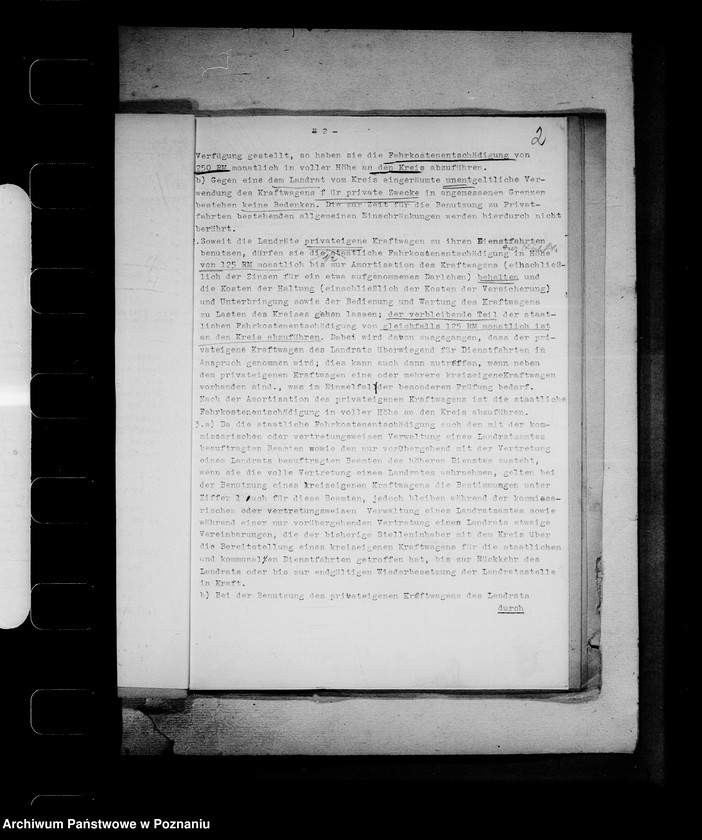 - 2 -
2
Verfügung gestellt, so haben sie die Fahrkostenentschädigung von
250 RM monatlich in voller Höhe an den Kreis abzuführen.
b) Gegen eine dem Landrat vom Kreis eingeräumte unentgeltliche Ver-
wendung des Kraftwagens f ür private Zwecke in angemessenen Grenzen
bestehen keine Bedenken. Die zur Zeit für die Benutzung zu Privat-
fahrten bestehenden allgemeinen Einschränkungen werden hierdurch nicht
berührt.
2.Soweit die Landräte privateigene Kraftwagen zu ihren Dienstfahrten
benutzen, dürfen sie die staatliche Fahrkostenentschädigung in Höhe
von 125 RM monatlich bis zur Amortisation des Kraftwagens (einschließ-
lich der Zinsen für ein etwa aufgenommenes Darlehen) behalten und
die Kosten der Haltung (einschließlich der Kosten der Versicherung)
und Unterbringung sowie der Bedienung und Wartung des Kraftwagens
zu Lasten des Kreises gehen lassen; der verbleibende Teil der staat-
lichen Fahrkostenentschädigung von gleichfalls 125 RM monatlich ist
an den Kreis abzuführen. Dabei wird davon ausgegangen, dass der pri-
vateigene Kraftwagen des Landrats überwiegend für Dienstfahrten in
Anspruch genommen wird; dies kann auch dann zutreffen, wenn neben
dem privateigenen Kraftwagen eine oder mehrere kreiseigeneKraftwagen
vorhanden sind., was im Einzelfall der besonderen Prüfung bedarf.
Nach der Amortisation des privateigenen Kraftwagens ist die staatliche
Fahrkostenentschädigung in voller Höhe an den Kreis abzuführen.
3.a) Da die staatliche Fahrkostenentschädigung auch den mit der kom-
missarischen oder vertretungsweisen Verwaltung eines Landratsamtes
beauftragten Beamten sowie den nur vorübergehend mit der Vertretung
eines Landrats beauftragten Beamten des höheren Dienstes zusteht,
wenn sie die volle Vertretung eines Landrates wahrnehmen, gelten bei
der Benutzung eines kreiseigenen Kraftwagens die Bestimmungen unter
Ziffer 1 auch für diese Beamten, jedoch bleiben während der kommissa-
rischen oder vertretungsweisen Verwaltung eines Landratsamtes sowie
während einer nur vorübergehenden Vertretung eines Landrats etwaige
Vereinbarungen, die der bisherige Stelleninhaber mit dem Kreis über
die Bereitstellung eines kreiseigenen Kraftwagens für die staatlichen
und kommunalen Dienstfahrten getroffen hat, bis zur Rückkehr des
Landrats oder bis zur endgültigen Wiederbesetzung der Landratsstelle
in Kraft.
b) Bei der Benutzung des privateigenen Kraftwagens des Landrats
durch
Archiwum Państwowe w Poznaniu